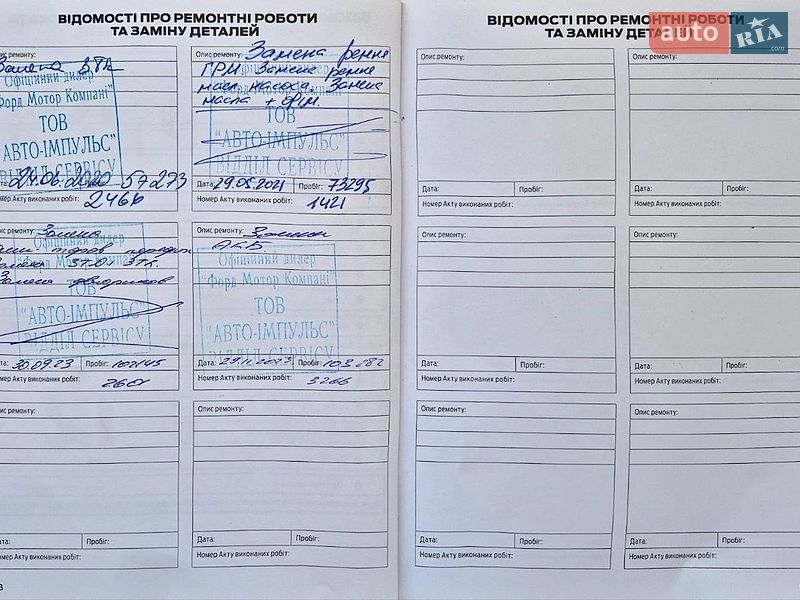 ВІДОМОСТІ ПРО РЕМОНТНІ РОБОТИ
ТА ЗАМІНУ ДЕТАЛЕЙ
ис ремонту:
Заміна ВТК
Офіційний дилер
Форд Мотор Компані"
ТОВ
АВТО-ІМПУЛЬС"
ВІДДІЛ СЕРВІСУ
24.06.2020 57273
Номер Акту виконаних робіт:
2466
Опис ремонту: Замена ремня
ГРМ. Замена ремня
масл. насоса. Замена
масла + фил.
ТОВ
АВТО-ІМПУЛЬС"
ВІДДІЛ СЕРВІСУ
Дата: 29.05.2021 Пробіг: 73295
Номер Акту виконаних робіт:
1421
ис ремонту: Замена
Офіційний дилер
Форд Мотор Компані"
ТОВ
"АВТО-ІМПУЛЬС"
ВІДДІЛ СЕРВІСУ
та: 30.09.23 Пробіг: 102145
мер Акту виконаних робіт:
2601
Опис ремонту: Замена
АКБ
Офіційний дилер
"Форд Мотор Компані"
ТОВ
"АВТО-ІМПУЛЬС"
ВІДДІЛ СЕРВІСУ
Дата: 29.11.2023 Пробіг: 103282
Номер Акту виконаних робіт:
3266
ис ремонту:
та: Пробіг:
мер Акту виконаних робіт:
Опис ремонту:
Дата: Пробіг:
Номер Акту виконаних робіт:
ВІДОМОСТІ ПРО РЕМОНТНІ РОБОТИ
ТА ЗАМІНУ ДЕТАЛЕЙ
auto RIA .com
Опис ремонту:
Дата: Пробіг:
Номер Акту виконаних робіт:
Опис ремонту:
Дата: Пробіг:
Номер Акту виконаних робіт:
Опис ремонту:
Дата: Пробіг:
Номер Акту виконаних робіт:
Опис ремонту:
Дата: Пробіг:
Номер Акту виконаних робіт:
Опис ремонту:
Дата: Пробіг:
Номер Акту виконаних робіт:
Опис ремонту:
Дата: Пробіг:
Номер Акту виконаних робіт: